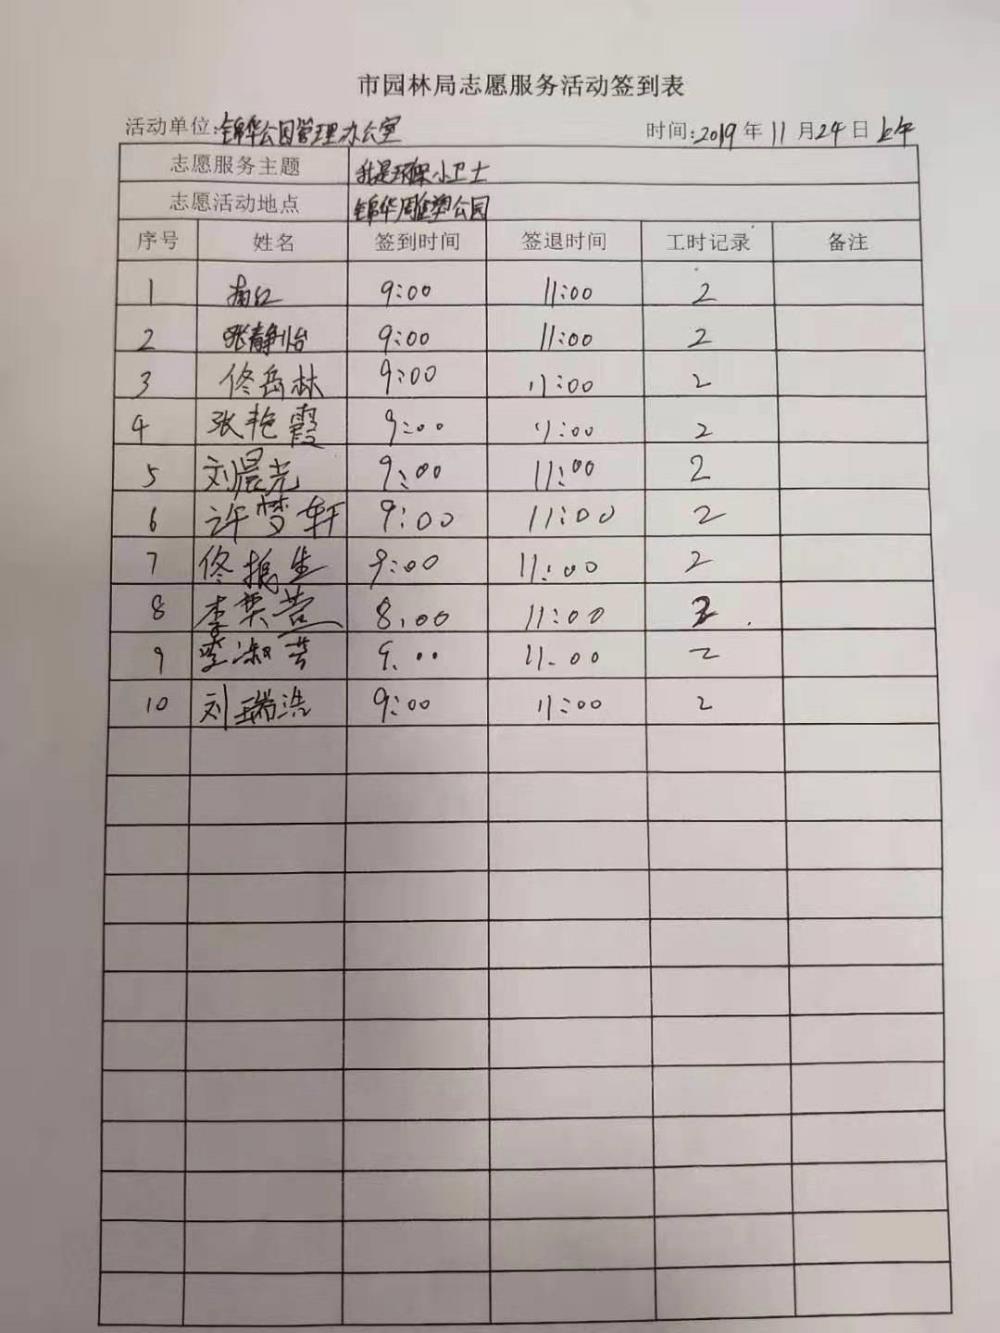 市园林局志愿服务活动签到表
活动单位:锦华公园管理办公室 时间:2019年11月24日上午
志愿服务主题 我是环保小卫士
志愿活动地点 锦华雕塑公园
序号 姓名 签到时间 签退时间 工时记录 备注
1 9:00 11:00 2
2 张静怡 9:00 11:00 2
3 佟岳林 9:00 11:00 2
4 张艳霞 9:00 11:00 2
5 刘晨光 9:00 11:00 2
6 许梦轩 9:00 11:00 2
7 佟 生 9:00 11:00 2
8 李 8:00 11:00
9 李淑芸 9:00 11:00 2
10 刘瑞浩 9:00 11:00 2